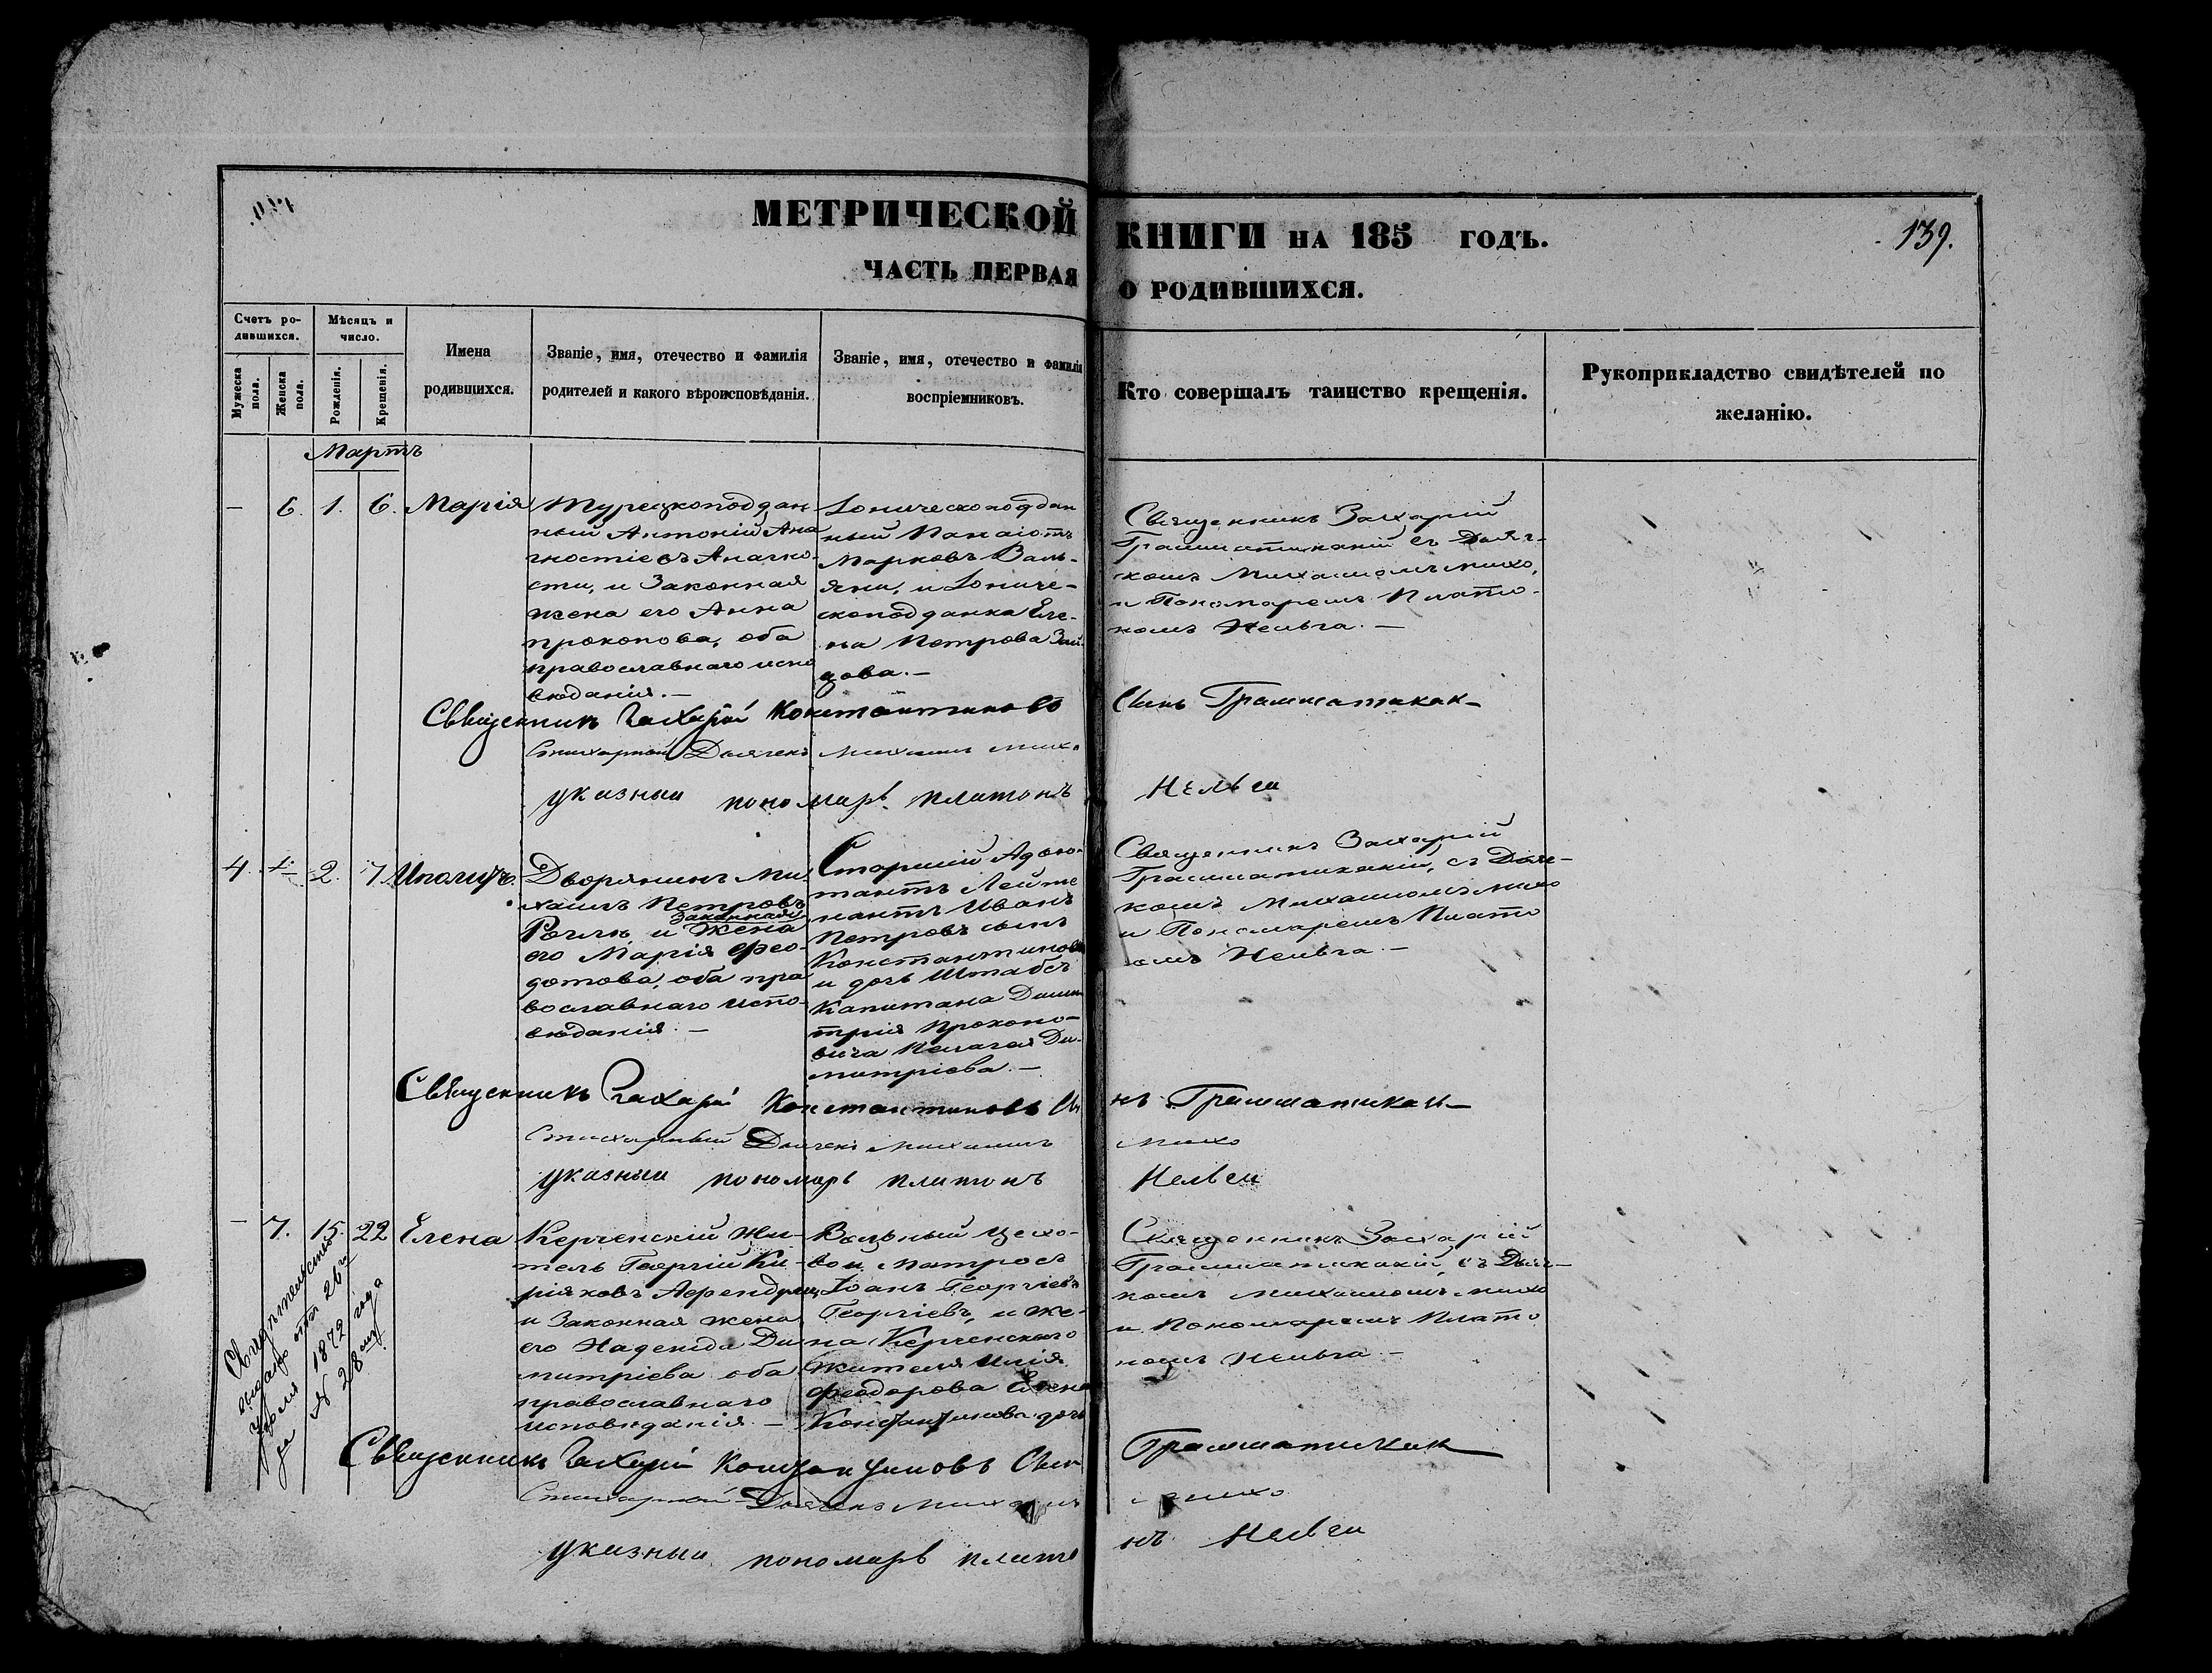 МЕТРИЧЕСКОЙ КНИГИ НА 185 ГОДЪ.
139.
ЧАСТЬ ПЕРВАЯ О РОДИВШИХСЯ.
Счетъ ро-
дившихся.
Мужеска пола.
Женска пола.
Мѣсяцъ и
число.
Рожденія.
Крещенія.
Имена
родившихся.
Званіе, имя, отечество и фамилія
родителей и какого вѣроисповѣданія.
Званіе, имя, отечество и фамилія
воспріемниковъ.
Кто совершалъ таинство крещенія.
Рукоприкладство свидѣтелей по
желанію.
Мартъ
— 6. 1. 6. Марія
Турецкоподдан-
ный Антоній Ана
гностіевъ Анагно-
сти, и Законная
жена его Анна
прокопова, оба
православнаго испо
вѣданія. —
Іоническоподдан
ный Панаіотъ
Марковъ Валь-
яни, и Іониче-
скоподданка Еле-
на Петрова
Священникъ Захарій
Грамматикакій съ Дьяч-
комъ Михаиломъ михо,
и Пономаремъ Плато-
номъ Нельга. —
Священникъ Захарій Константиновъ Сынъ Грамматикаки
Стихарный Дьячекъ Михаилъ михо
указный пономарь платонъ Нельги
4. 2. 7. Иполитъ.
Дворянинъ Ми-
хаилъ Петровъ
законная
и жена
его Марія Фео-
дотова, оба пра
вославнаго испо-
вѣданія. —
Старшій Адъю-
тантъ Лейте
нантъ Иванъ
Петровъ сынъ
Константиновъ
и дочь Штабсъ
Капитана Дими
трія Прокопо-
вича Пелагея Ди-
митріева. —
Священникъ Захарій
Грамматикакій, съ Дьяч-
комъ Михаиломъ михо
и Пономаремъ Плато
номъ Нельга. —
Священникъ Захарій Константиновъ Сынъ Грамматикаки
Стихарный Дьячекъ Михаилъ михо
указный пономарь платонъ Нельги
— 7. 15. 22 Елена
Керченскій Жи-
тель Георгій Ки-
ріяковъ
и Законная жена
его Надежда Ди
митріева оба
православнаго
исповѣданія. —
Вольный Цехо-
вой матросъ
Іоанъ Георгіевъ
Георгіевъ, и же-
на Керченскаго
жителя Илія
Феодорова Елена
Константинова дочь
Священникъ Захарій
Грамматикакій, съ Дьяч-
комъ Михаиломъ михо
и Пономаремъ Плато
номъ Нельга —
Свидѣтельство
выдано отъ 26го
Іюля 1872 года
за № 28
Священникъ Захарій Константиновъ Сынъ Грамматикаки
Стихарный Дьячекъ Михаилъ михо
указный пономарь платонъ Нельги